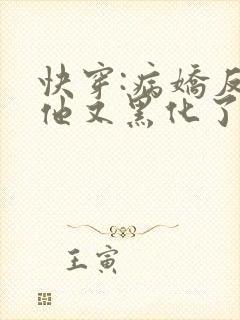 快穿:病嬌反
他又黑化了
王寅